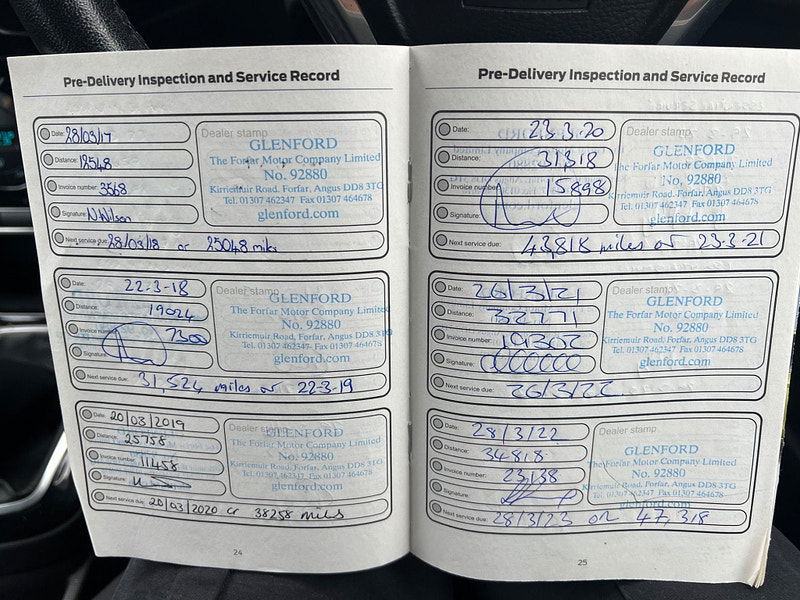 Pre-Delivery Inspection and Service Record
Date: 28/03/17
Distance: 12548
Invoice number: 3568
Signature: N.Wilson
Next service due: 28/03/18 or 25048 miles
Dealer stamp
GLENFORD
The Forfar Motor Company Limited
No. 92880
Kirriemuir Road, Forfar, Angus DD8 3TG
Tel. 01307 462347 Fax 01307 464678
glenford.com
Date: 22-3-18
Distance: 19024
Invoice number: 7300
Signature:
Next service due: 31,524 miles or 22-3-19
Dealer stamp
GLENFORD
The Forfar Motor Company Limited
No. 92880
Kirriemuir Road, Forfar, Angus DD8 3TG
Tel. 01307 462347 Fax 01307 464678
glenford.com
Date: 20/03/2019
Distance: 25758
Invoice number: 11458
Signature:
Next service due: 20/03/2020 or 38258 miles
Dealer stamp
GLENFORD
The Forfar Motor Company Limited
No. 92880
Kirriemuir Road, Forfar, Angus DD8 3TG
Tel. 01307 462347 Fax 01307 464678
glenford.com
24
Pre-Delivery Inspection and Service Record
Date: 23.3.20
Distance: 31318
Invoice number: 15898
Signature:
Next service due: 43,818 miles or 23-3-21
Dealer stamp
GLENFORD
The Forfar Motor Company Limited
No. 92880
Kirriemuir Road, Forfar, Angus DD8 3TG
Tel. 01307 462347 Fax 01307 464678
glenford.com
Date: 26/3/21
Distance: 32771
Invoice number: 19302
Signature:
Next service due: 26/3/22
Dealer stamp
GLENFORD
The Forfar Motor Company Limited
No. 92880
Kirriemuir Road, Forfar, Angus DD8 3TG
Tel. 01307 462347 Fax 01307 464678
glenford.com
Date: 28/3/22
Distance: 34818
Invoice number: 23138
Signature:
Next service due: 28/3/23 or 47,318
Dealer stamp
GLENFORD
The Forfar Motor Company Limited
No. 92880
Kirriemuir Road, Forfar, Angus DD8 3TG
Tel. 01307 462347 Fax 01307 464678
glenford.com
25